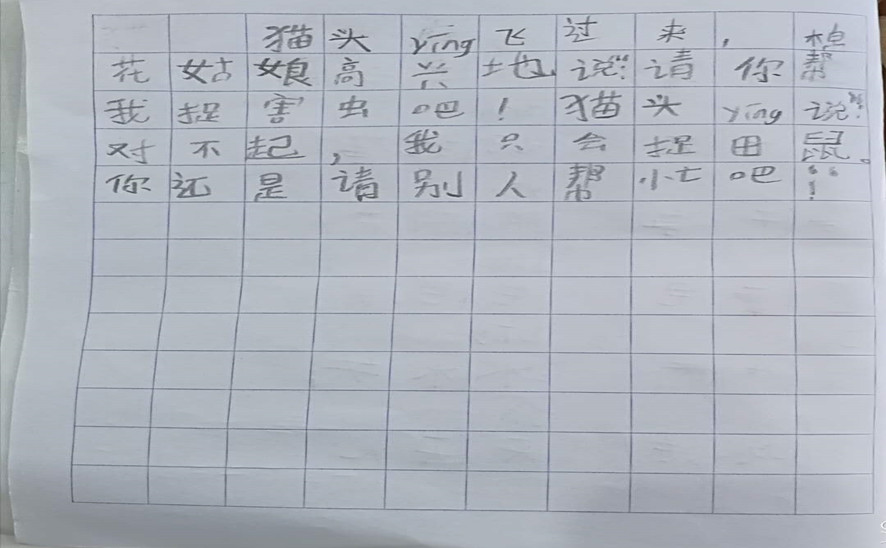 猫头ying飞过来，棉
花姑娘高兴地说：“请你帮
我捉害虫吧！猫头ying说：“
对不起，我只会捉田鼠。
你还是请别人帮忙吧！“